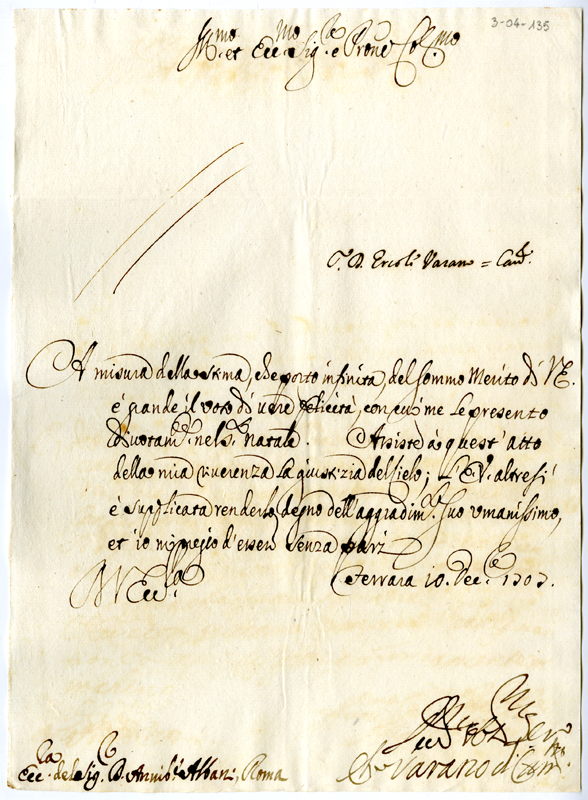 3-04-135
Ill.mo et Ecc.mo Sig.re e Prone Col.mo
D. Ercole Varano = Cam.
A misura della stima, che porto infinita, del sommo Merito di V.E.
è grande il voto di vere felicità, con cui me le presento
divotam.te nel S. Natale. Assiste à quest'atto
della mia riverenza la giustizia del Cielo; L'E.V. altresì
è supplicata renderlo degno dell'aggradim.to Suo umanissimo,
et io mi pregio d'essere senza pari
Di V. Ecc.a
Ferrara 10. Dec.e 1707.
Varano di Cam.
Ecc.la del Sig. D. Annib.e Albani, Roma